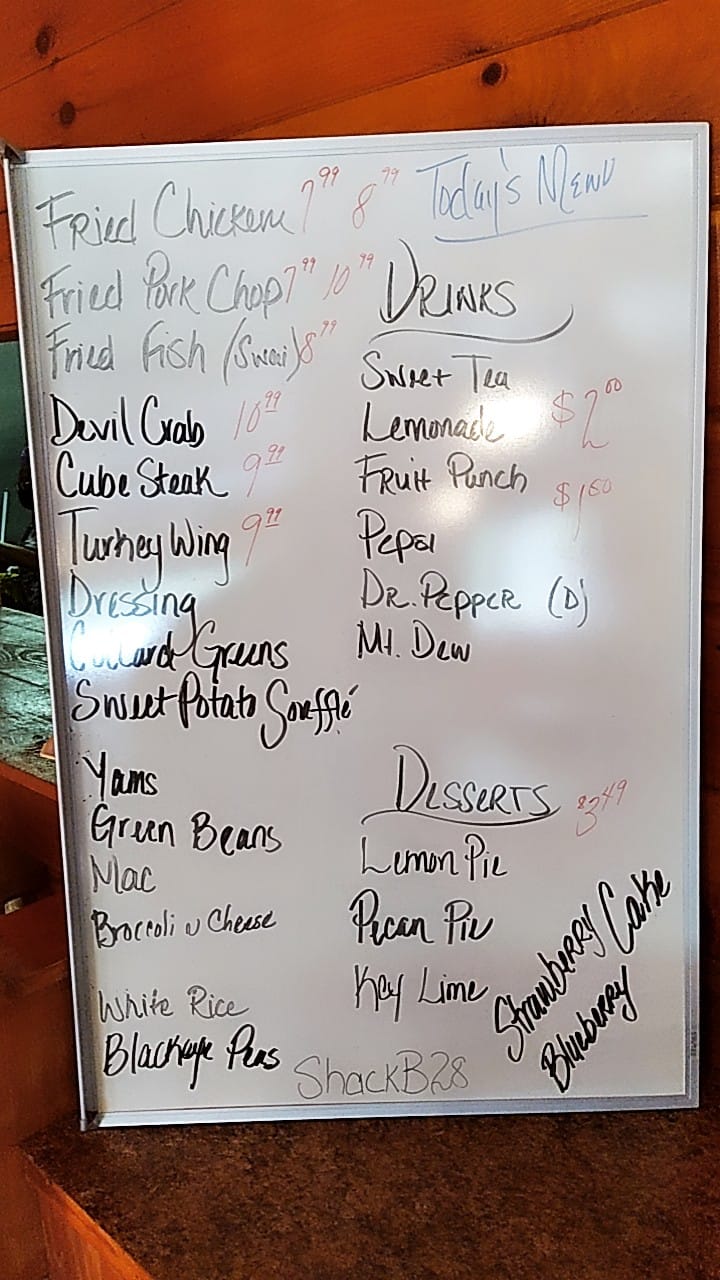 Today's Menu
Fried Chicken 7.99 8.99
Fried Pork Chop 7.99 10.99
Fried Fish (Swai) 8.99
Devil Crab 10.99
Cube Steak 9.99
Turkey Wing 9.99
Dressing
Collard Greens
Sweet Potato Soufflé
Yams
Green Beans
Mac
Broccoli n Cheese
White Rice
Blackeye Peas
Drinks
Sweet Tea
Lemonade $2.00
Fruit Punch
$1.50
Pepsi
Dr. Pepper (D)
Mt. Dew
Desserts $3.49
Lemon Pie
Pecan Pie
Key Lime
Strawberry Cake
Blueberry
ShackB28